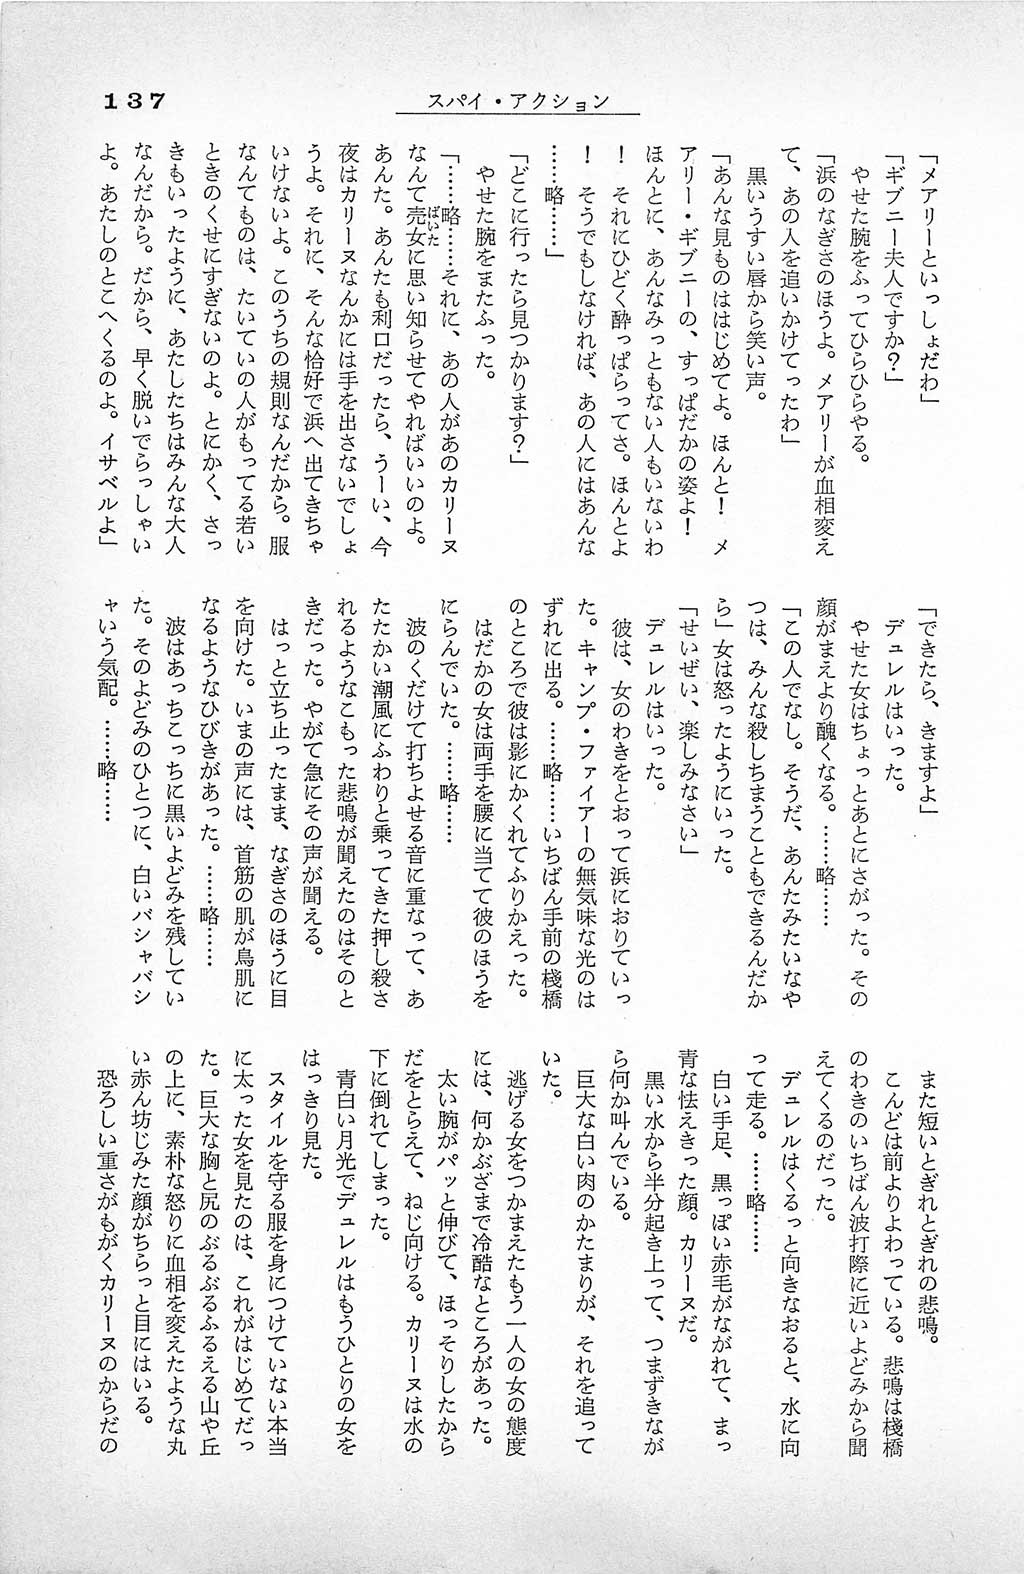 137
スパイ・アクション
「メアリーといっしょだわ」
「ギブニー夫人ですか?」
やせた腕をふってひらひらやる。
「浜のなぎさのほうよ。メアリーが血相変え
て、あの人を追いかけてったわ」
黒いうすい唇から笑い声。
「あんな見ものははじめてよ。ほんと! メ
アリー・ギブニーの、すっぱだかの姿よ!
ほんとに、あんなみっともない人もいないわ
! それにひどく酔っぱらってさ。ほんとよ
! そうでもしなければ、あの人にはあんな
……略……」
「どこに行ったら見つかります?」
やせた腕をまたふった。
「……略……それに、あの人があのカリーヌ
なんて売女ばいたに思い知らせてやればいいのよ。
あんた。あんたも利口だったら、うーい、今
夜はカリーヌなんかには手を出さないでしょ
うよ。それに、そんな恰好で浜へ出てきちゃ
いけないよ。このうちの規則なんだから。服
なんてものは、たいていの人がもってる若い
ときのくせにすぎないのよ。とにかく、さっ
きもいったように、あたしたちはみんな大人
なんだから。だから、早く脱いでらっしゃい
よ。あたしのとこへくるのよ。イサベルよ」
「できたら、きますよ」
デュレルはいった。
やせた女はちょっとあとにさがった。その
顔がまえより醜くなる。……略……
「この人でなし。そうだ、あんたみたいなや
つは、みんな殺しちまうこともできるんだか
ら」女は怒ったようにいった。
「せいぜい、楽しみなさい」
デュレルはいった。
彼は、女のわきをとおって浜におりていっ
た。キャンプ・ファイアーの無気味な光のは
ずれに出る。……略……いちばん手前の棧橋
のところで彼は影にかくれてふりかえった。
はだかの女は両手を腰に当てて彼のほうを
にらんでいた。……略……
波のくだけて打ちよせる音に重なって、あ
たたかい潮風にふわりと乗ってきた押し殺さ
れるようなこもった悲鳴が聞えたのはそのと
きだった。やがて急にその声が聞える。
はっと立ち止ったまま、なぎさのほうに目
を向けた。いまの声には、首筋の肌が鳥肌に
なるようなひびきがあった。……略……
波はあっちこっちに黒いよどみを残してい
た。そのよどみのひとつに、白いバシャバシ
ャいう気配。……略……
また短いとぎれとぎれの悲鳴。
こんどは前よりよわっている。悲鳴は棧橋
のわきのいちばん波打際に近いよどみから聞
えてくるのだった。
デュレルはくるっと向きなおると、水に向
って走る。……略……
白い手足、黒っぽい赤毛がながれて、まっ
青な怯えきった顔。カリーヌだ。
黒い水から半分起き上って、つまずきなが
ら何か叫んでいる。
巨大な白い肉のかたまりが、それを追って
いた。
逃げる女をつかまえたもう一人の女の態度
には、何かぶざまで冷酷なところがあった。
太い腕がパッと伸びて、ほっそりしたから
だをとらえて、ねじ向ける。カリーヌは水の
下に倒れてしまった。
青白い月光でデュレルはもうひとりの女を
はっきり見た。
スタイルを守る服を身につけていない本当
に太った女を見たのは、これがはじめてだっ
た。巨大な胸と尻のぶるぶるふるえる山や丘
の上に、素朴な怒りに血相を変えたような丸
い赤ん坊じみた顔がちらっと目にはいる。
恐ろしい重さがもがくカリーヌのからだの